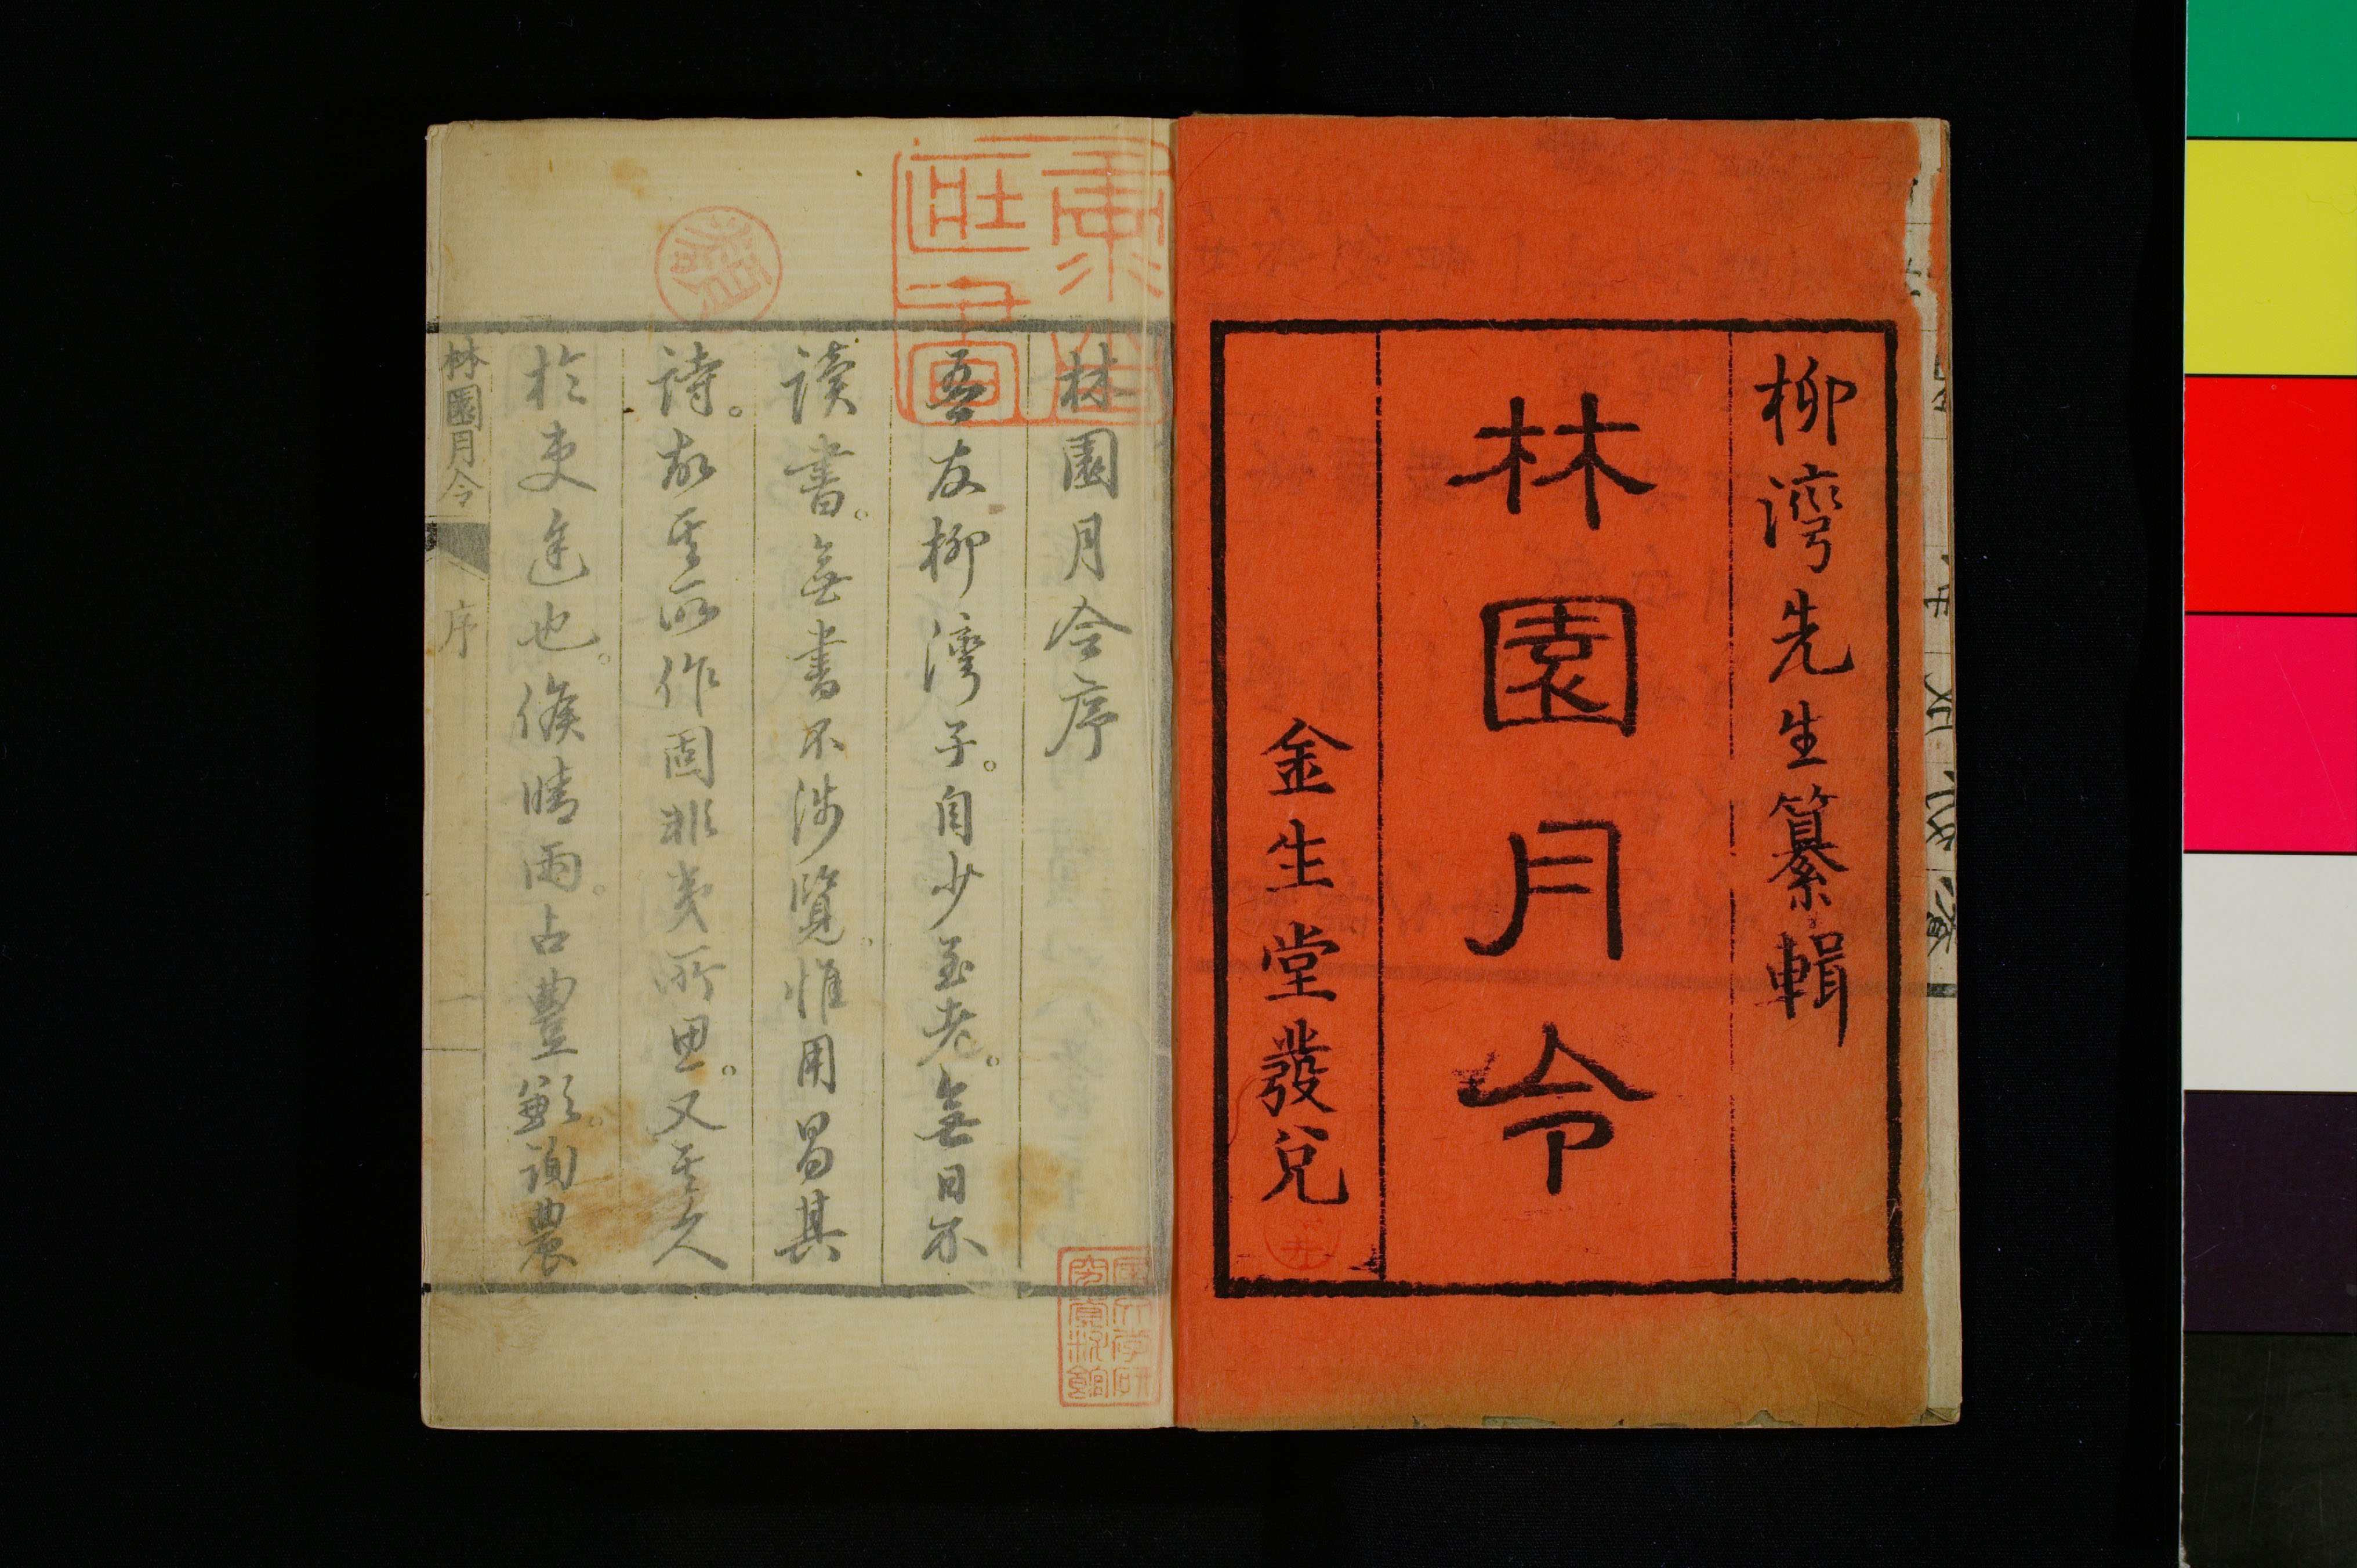 柳灣先生纂輯
林園月令
金生堂發兌
林園月令序
吾友柳灣子。自少至老。無日不
讀書。無書不涉覽。惟用昌其
詩。故其所作固非夷所思。又其久
於吏途也。候晴雨。占豐歉。詢農
林園月令
序
一